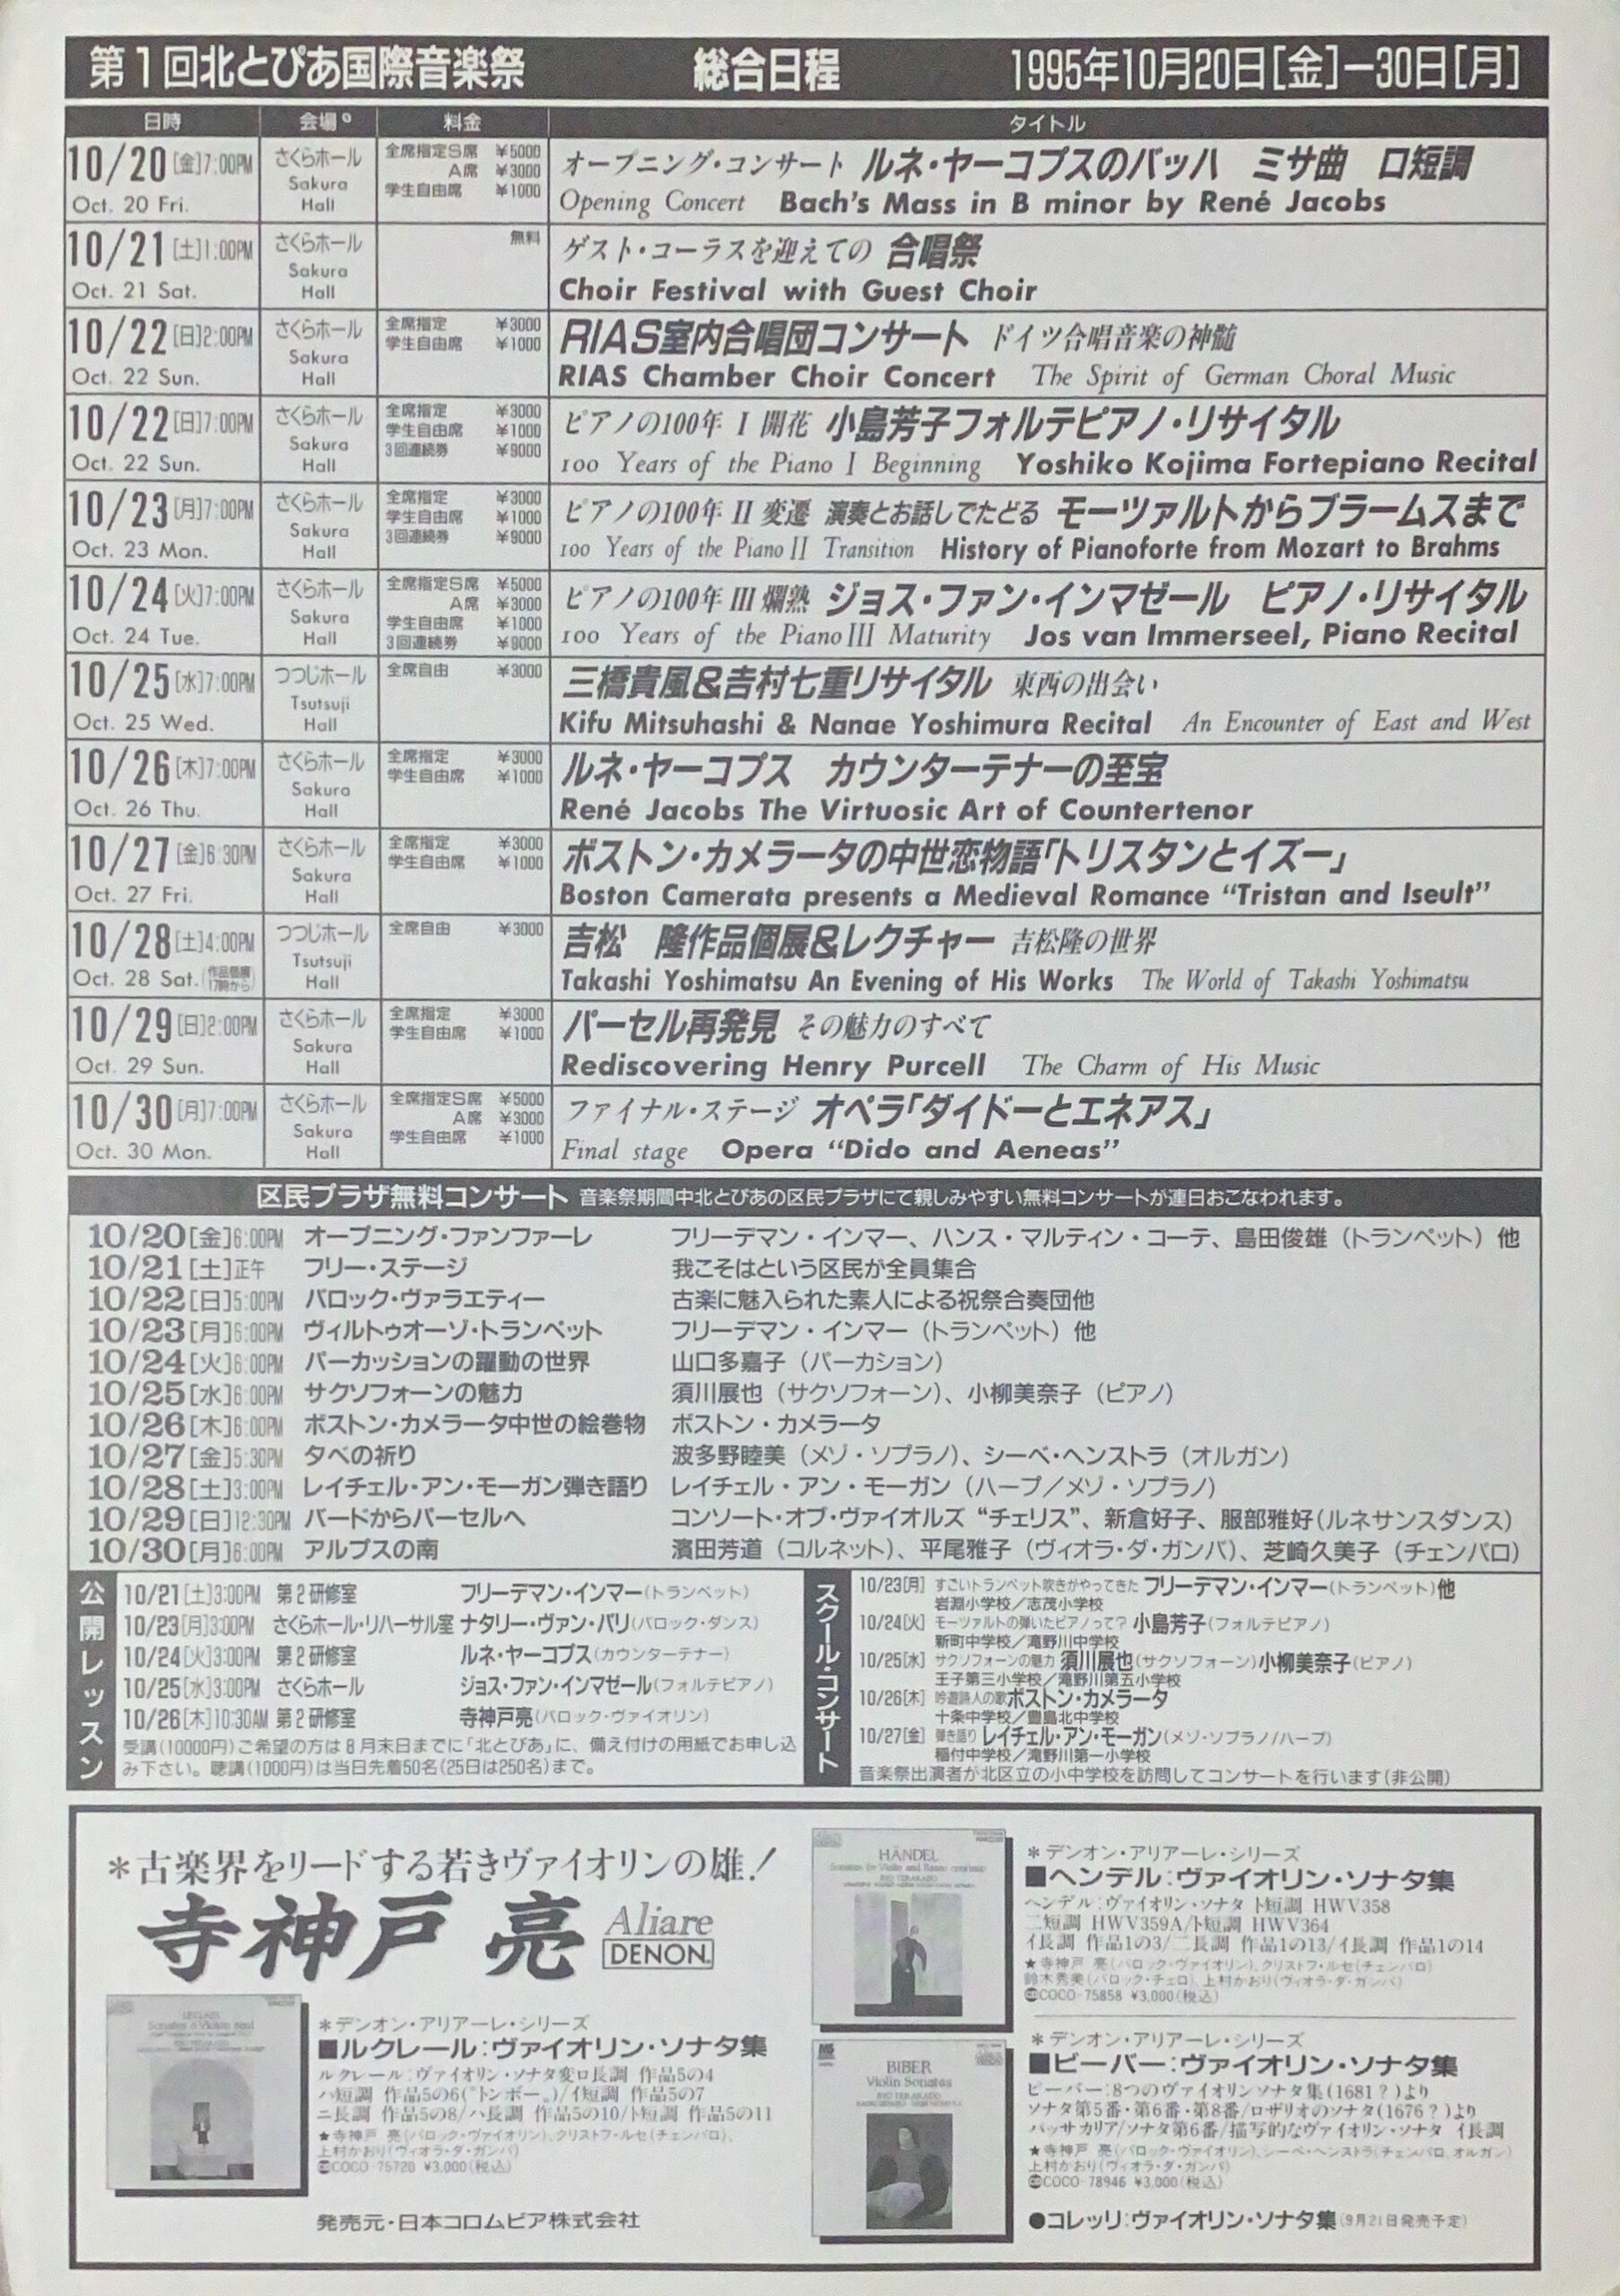 第1回北とぴあ国際音楽祭 総合日程 1995年10月20日[金]ー30日[月]
日時 会場 料金 タイトル
10/20[金]7:00PM さくらホール 全席指定S席 ¥5000 オープニング・コンサート ルネ・ヤーコプスのバッハ ミサ曲 ロ短調
Sakura A席 ¥3000
Oct. 20 Fri. Hall 学生自由席 ¥1000 Opening Concert Bach's Mass in B minor by René Jacobs
10/21[土]1:00PM さくらホール 無料 ゲスト・コーラスを迎えての 合唱祭
Oct. 21 Sat. Sakura Hall Choir Festival with Guest Choir
10/22[日]2:00PM さくらホール 全席指定 ¥3000 RIAS室内合唱団コンサート ドイツ合唱音楽の神髄
学生自由席 ¥1000
Oct. 22 Sun. Sakura Hall RIAS Chamber Choir Concert The Spirit of German Choral Music
10/22[日]7:00PM さくらホール 全席指定 ¥3000 ピアノの100年 I 開花 小島芳子フォルテピアノ・リサイタル
学生自由席 ¥1000
3回連続券 ¥9000
Oct. 22 Sun. Sakura Hall 100 Years of the Piano I Beginning Yoshiko Kojima Fortepiano Recital
10/23[月]7:00PM さくらホール 全席指定 ¥3000 ピアノの100年 II 変遷 演奏とお話しでたどる モーツァルトからブラームスまで
学生自由席 ¥1000
3回連続券 ¥9000
Oct. 23 Mon. Sakura Hall 100 Years of the Piano II Transition History of Pianoforte from Mozart to Brahms
10/24[火]7:00PM さくらホール 全席指定S席 ¥5000 ピアノの100年 III 爛熟 ジョス・ファン・インマゼール ピアノ・リサイタル
A席 ¥3000
学生自由席 ¥1000
3回連続券 ¥9000
Oct. 24 Tue. Sakura Hall 100 Years of the Piano III Maturity Jos van Immerseel, Piano Recital
10/25[水]7:00PM つつじホール 全席自由 ¥3000 三橋貴風&吉村七重リサイタル 東西の出会い
Oct. 25 Wed. Tsutsuji Hall Kifu Mitsuhashi & Nanae Yoshimura Recital An Encounter of East and West
10/26[木]7:00PM さくらホール 全席指定 ¥3000 ルネ・ヤーコプス カウンターテナーの至宝
学生自由席 ¥1000
Oct. 26 Thu. Sakura Hall René Jacobs The Virtuosic Art of Countertenor
10/27[金]6:30PM さくらホール 全席指定 ¥3000 ボストン・カメラータの中世恋物語「トリスタンとイズー」
学生自由席 ¥1000
Oct. 27 Fri. Sakura Hall Boston Camerata presents a Medieval Romance “Tristan and Iseult”
10/28[土]4:00PM つつじホール 全席自由 ¥3000 吉松 隆作品個展&レクチャー 吉松隆の世界
Oct. 28 Sat. (作品個展17時から) Tsutsuji Hall Takashi Yoshimatsu An Evening of His Works The World of Takashi Yoshimatsu
10/29[日]2:00PM さくらホール 全席指定 ¥3000 パーセル再発見 その魅力のすべて
学生自由席 ¥1000
Oct. 29 Sun. Sakura Hall Rediscovering Henry Purcell The Charm of His Music
10/30[月]7:00PM さくらホール 全席指定S席 ¥5000 ファイナル・ステージ オペラ「ダイドーとエネアス」
A席 ¥3000
学生自由席 ¥1000
Oct. 30 Mon. Sakura Hall Final stage Opera “Dido and Aeneas”
区民プラザ無料コンサート 音楽祭期間中北とぴあの区民プラザにて親しみやすい無料コンサートが連日おこなわれます。
10/20[金]6:00PM オープニング・ファンファーレ フリーデマン・インマー、ハンス・マルティン・コーテ、島田俊雄（トランペット）他
10/21[土]正午 フリー・ステージ 我こそはという区民が全員集合
10/22[日]5:00PM バロック・ヴァラエティー 古楽に魅入られた素人による祝祭合奏団他
10/23[月]6:00PM ヴィルトゥオーゾ・トランペット フリーデマン・インマー（トランペット）他
10/24[火]6:00PM パーカッションの躍動の世界 山口多嘉子（パーカション）
10/25[水]6:00PM サクソフォーンの魅力 須川展也（サクソフォーン）、小柳美奈子（ピアノ）
10/26[木]6:00PM ボストン・カメラータ中世の絵巻物 ボストン・カメラータ
10/27[金]5:30PM 夕べの祈り 波多野睦美（メゾ・ソプラノ）、シーベ・ヘンストラ（オルガン）
10/28[土]3:00PM レイチェル・アン・モーガン弾き語り レイチェル・アン・モーガン（ハープ／メゾ・ソプラノ）
10/29[日]12:30PM バードからパーセルへ コンソート・オブ・ヴァイオルズ“チェリス”、新倉好子、服部雅好(ルネサンスダンス)
10/30[月]6:00PM アルプスの南 濱田芳道（コルネット）、平尾雅子（ヴィオラ・ダ・ガンバ）、芝崎久美子（チェンバロ）
公開レッスン
10/21[土]3:00PM 第2研修室 フリーデマン・インマー(トランペット)
10/23[月]3:00PM さくらホール・リハーサル室 ナタリー・ヴァン・パリ(バロック・ダンス)
10/24[火]3:00PM 第2研修室 ルネ・ヤーコプス(カウンターテナー)
10/25[水]3:00PM さくらホール ジョス・ファン・インマゼール(フォルテピアノ)
10/26[木]10:30AM 第2研修室 寺神戸亮(バロック・ヴァイオリン)
受講(10000円)ご希望の方は8月末日までに「北とぴあ」に、備え付けの用紙でお申し込
み下さい。聴講(1000円)は当日先着50名(25日は250名)まで。
スクール・コンサート
10/23[月] すごいトランペット吹きがやってきた フリーデマン・インマー(トランペット)他
岩淵小学校／志茂小学校
10/24[火] モーツァルトの弾いたピアノって? 小島芳子(フォルテピアノ)
新町中学校／滝野川中学校
10/25[水] サクソフォーンの魅力 須川展也(サクソフォーン)小柳美奈子(ピアノ)
王子第三小学校／滝野川第五小学校
10/26[木] 吟遊詩人の歌 ボストン・カメラータ
十条中学校／豊島北中学校
10/27[金] 弾き語り レイチェル・アン・モーガン(メゾ・ソプラノ/ハープ)
稲付中学校／滝野川第一小学校
音楽祭出演者が北区立の小中学校を訪問してコンサートを行います(非公開)
＊古楽界をリードする若きヴァイオリンの雄！
寺神戸 亮 Aliare
DENON
HÄNDEL
Sonatas for Violin and Basso continuo
RYO TERAKADO
＊デンオン・アリアーレ・シリーズ
■ヘンデル：ヴァイオリン・ソナタ集
ヘンデル：ヴァイオリン・ソナタ ト短調 HWV358
二短調 HWV359A/ト短調 HWV364
イ長調 作品1の3/二長調 作品1の13/イ長調 作品1の14
★寺神戸 亮(バロック・ヴァイオリン)、クリストフ・ルセ(チェンバロ)
鈴木秀美(バロック・チェロ)、上村かおり(ヴィオラ・ダ・ガンバ)
CD COCO-75858 ¥3,000(税込)
LECLAIR
＊デンオン・アリアーレ・シリーズ
■ルクレール：ヴァイオリン・ソナタ集
ルクレール：ヴァイオリン・ソナタ変ロ長調 作品5の4
ハ短調 作品5の6(“トンボー„)/イ短調 作品5の7
ニ長調 作品5の8/ハ長調 作品5の10/ト短調 作品5の11
★寺神戸 亮(バロック・ヴァイオリン)、クリストフ・ルセ(チェンバロ)、
上村かおり(ヴィオラ・ダ・ガンバ)
CD COCO-75720 ¥3,000(税込)
発売元・日本コロムビア株式会社
BIBER
Violin Sonatas
RYO TERAKADO
＊デンオン・アリアーレ・シリーズ
■ビーバー：ヴァイオリン・ソナタ集
ビーバー：8つのヴァイオリンソナタ集(1681？)より
ソナタ第5番・第6番・第8番/ロザリオのソナタ(1676？)より
パッサカリア/ソナタ第6番/描写的なヴァイオリン・ソナタ イ長調
★寺神戸 亮(バロック・ヴァイオリン)、シーベ・ヘンストラ(チェンバロ、オルガン)
上村かおり(ヴィオラ・ダ・ガンバ)
CD COCO-78946 ¥3,000(税込)
●コレッリ：ヴァイオリン・ソナタ集(9月21日発売予定)